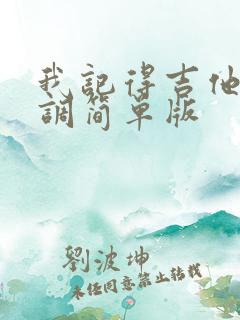 我記得吉他
調简单版
劉波坤
未经同意禁止转载